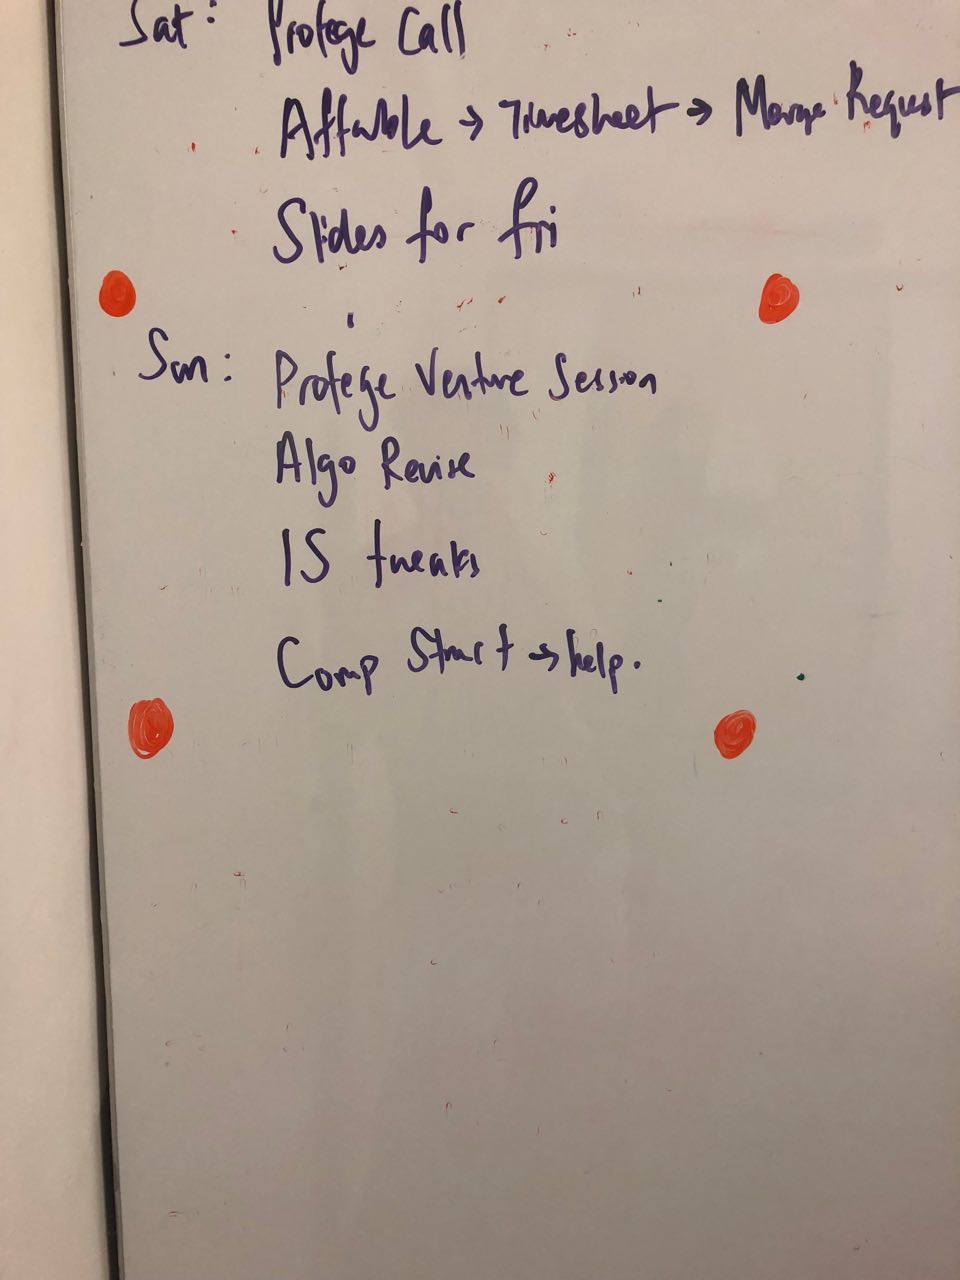 Sat: Protege Call
Affable → Timesheet → Merge Request
Slides for fri
Sun: Protege Venture Session
Algo Revise
IS tweaks
Comp Struct → help.